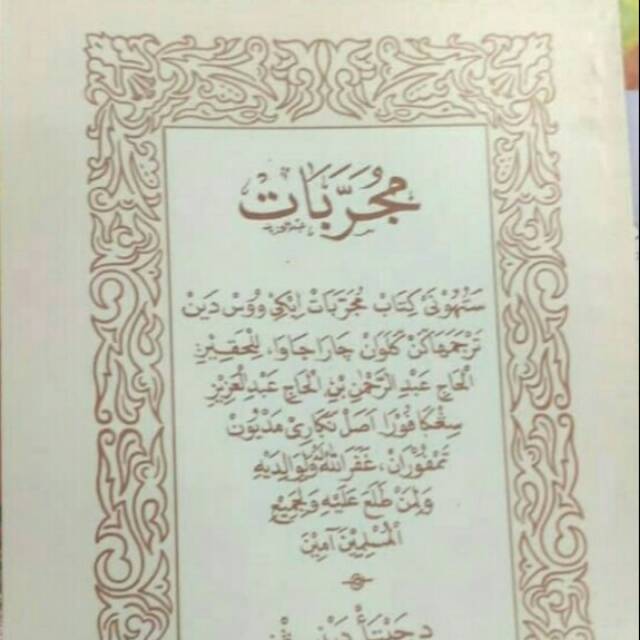 مُجَرَّبَات
سَتُهُونَي كِتَابْ مُجَرَّبَاتْ اِيْكِي وُوسْ دَيْنْ
تَرْجَمَهَاكَنْ كَلَوَنْ چَارَا جَاوَا، لِلْحَقِيْرِ
الْحَاج عَبْدِ الرَّحْمٰنْ بْنِ الْحَاج عَبْدِ الْعَزِيْزِ
سِڠْكَافُوْرَا اَصَلْ نَكَارِيْ مَدْيُوْنْ
غَفَرَ اللهُ لَهُ وَلِوَالِدَيْهِ
وَلِمَنْ طَلَعَ عَلَيْهِ وَلِجَمِيْعِ
الْمُسْلِمِيْنَ آمِيْنَ